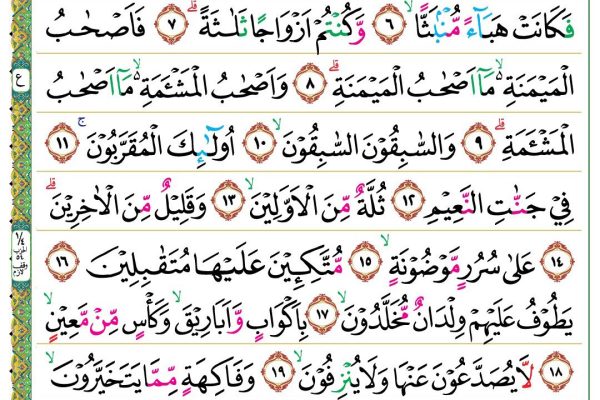 فَكَانَتْ هَبَآءً مُّنْۢبَثًّا ۙ﴿٦﴾ وَّكُنْتُمْ اَزْوَاجًا ثَلٰثَةً ؕ﴿٧﴾ فَاَصْحٰبُ
الْمَيْمَنَةِ ۙ مَاۤ اَصْحٰبُ الْمَيْمَنَةِ ؕ﴿٨﴾ وَاَصْحٰبُ الْمَشْـَٔمَةِ ۙ مَاۤ اَصْحٰبُ
الْمَشْـَٔمَةِ ؕ﴿٩﴾ وَالسّٰبِقُوْنَ السّٰبِقُوْنَ ۙ﴿١٠﴾ اُولٰٓئِكَ الْمُقَرَّبُوْنَ ۚ﴿١١﴾
فِيْ جَنّٰتِ النَّعِيْمِ ﴿١٢﴾ ثُلَّةٌ مِّنَ الْاَوَّلِيْنَ ۙ﴿١٣﴾ وَقَلِيْلٌ مِّنَ الْاٰخِرِيْنَ ؕ
﴿١٤﴾ عَلٰى سُرُرٍ مَّوْضُوْنَةٍ ۙ﴿١٥﴾ مُّتَّكِـِٕيْنَ عَلَيْهَا مُتَقٰبِلِيْنَ ﴿١٦﴾
يَطُوْفُ عَلَيْهِمْ وِلْدَانٌ مُّخَلَّدُوْنَ ۙ﴿١٧﴾ بِاَكْوَابٍ وَّاَبَارِيْقَ ۙ وَكَاْسٍ مِّنْ مَّعِيْنٍ ۙ
﴿١٨﴾ لَّا يُصَدَّعُوْنَ عَنْهَا وَلَا يُنْزِفُوْنَ ۙ﴿١٩﴾ وَفَاكِهَةٍ مِّمَّا يَتَخَيَّرُوْنَ ۙ
ع